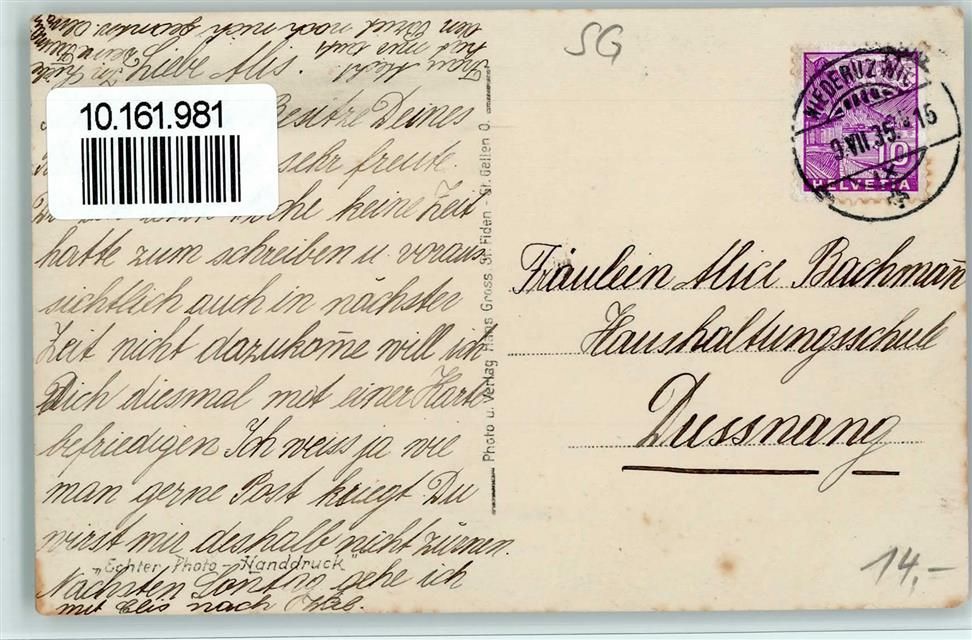 Liebe Alis.
Besitze Deines
sehr freute.
keine Zeit
hatte zum schreiben u. voraus
sichtlich auch in nächster
Zeit nicht dazukom̄e will ich
Dich diesmal mot einer Karte
befriedigen Ich weiss ja wie
man gerne Post kriegt Du
wirst mir deshalb nicht zürnen.
Nächsten Sonntag gehe ich
mit Elis nach
"Echter Photo-Handdruck"
10.161.981
Photo u. Verlag Hans Gross St. Fiden - St. Gallen O.
SG
NIEDERUZWIL
9.VII.35. 15
10
HELVETIA
Fräulein Alice Bachman̄
Haushaltungsschule
Dussnang
14,-